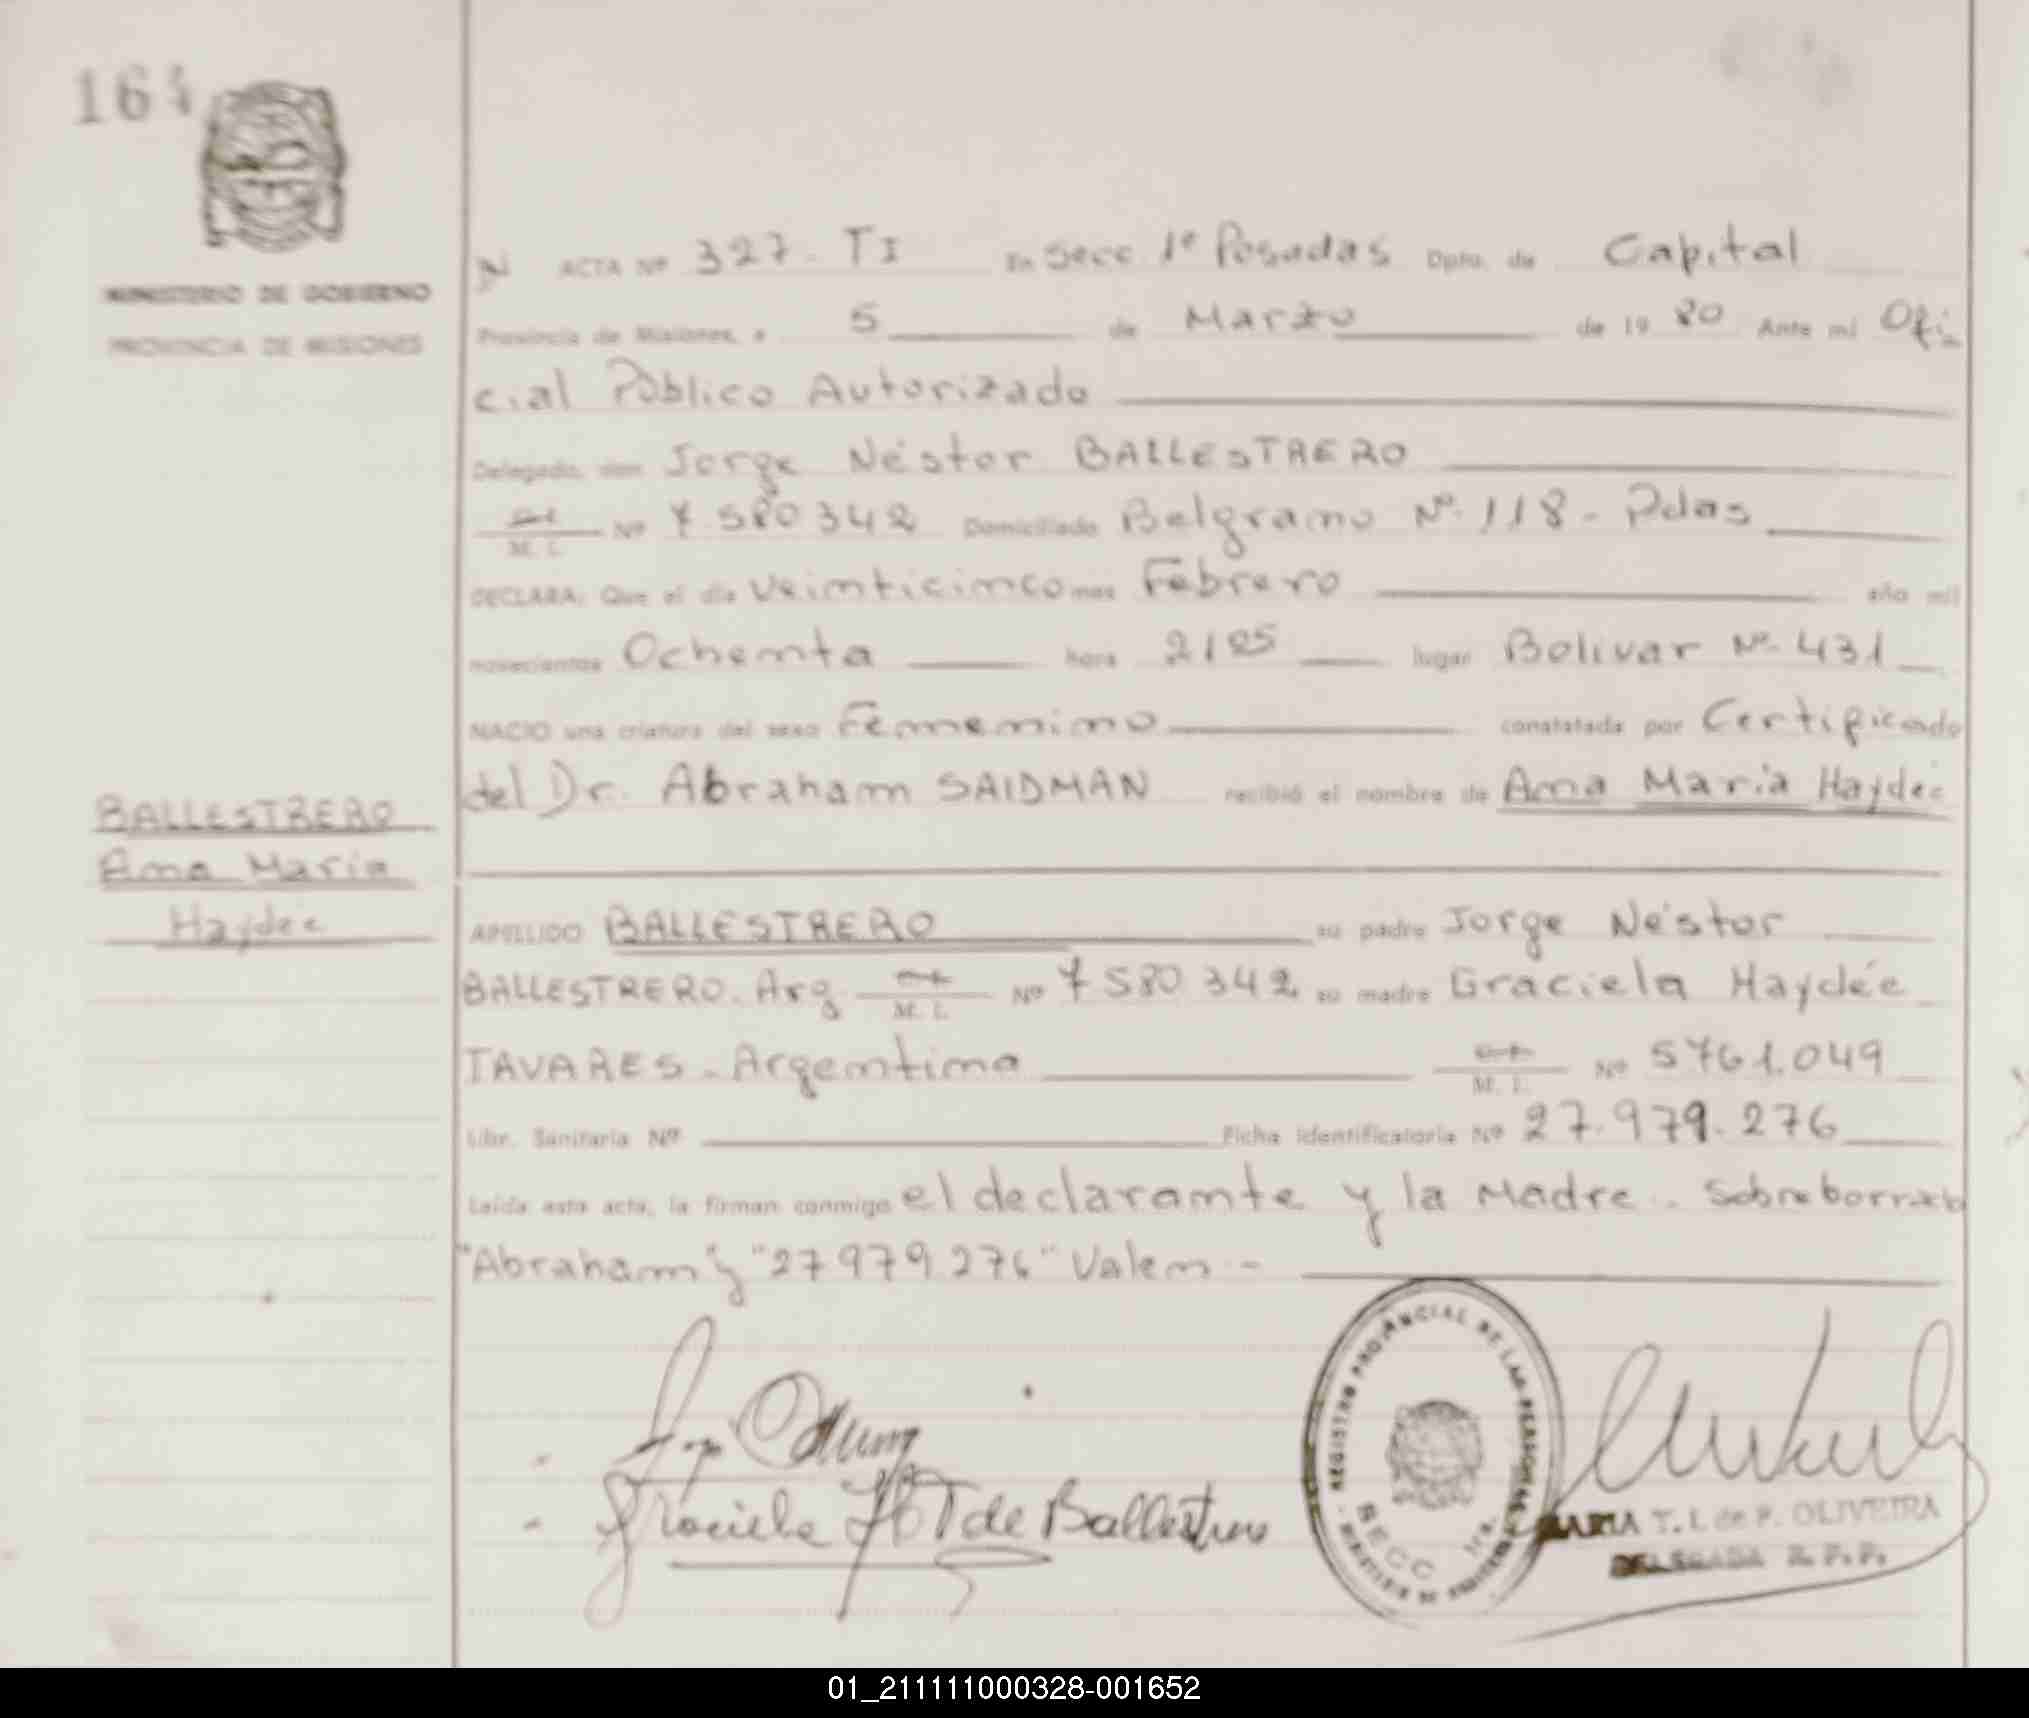 164
MINISTERIO DE GOBIERNO
PROVINCIA DE MISIONES
ACTA Nº 327. TI En Secc 1ª Posadas Dpto. de Capital
Provincia de Misiones, a 5 de Marzo de 19 80 Ante mí Ofi
cial Público Autorizado
Delegado, don Jorge Néstor BALLESTRERO
M. I. Nº 7 580 342 Domiciliado Belgrano Nº 118 - Pdas
DECLARA: Que el día Veinticinco mes Febrero año mil
novecientos Ochenta hora 2125 lugar Bolivar Nº 431
NACIO una criatura del sexo Femenino constatada por Certificado
del Dr. Abraham SAIDMAN recibió el nombre de Ana María Haydée
BALLESTRERO
Ana María
Haydée
APELLIDO BALLESTRERO su padre Jorge Néstor
BALLESTRERO. Arg M. I. Nº 7 580 342 su madre Graciela Haydée
TAVARES - Argentina M. I. Nº 5761.049
Libr. Sanitaria Nº Ficha identificatoria Nº 27.979.276
Leída esta acta, la firman conmigo el declarante y la Madre. Sobreborrado
"Abraham" y "27 979 276" Valen -
Graciela H T de Ballestrero
REGISTRO PROVINCIAL DE LAS PERSONAS
SECC 1ra.
MARIA T. I. de P. OLIVEIRA
DELEGADA R. P. P.
01_211111000328-001652